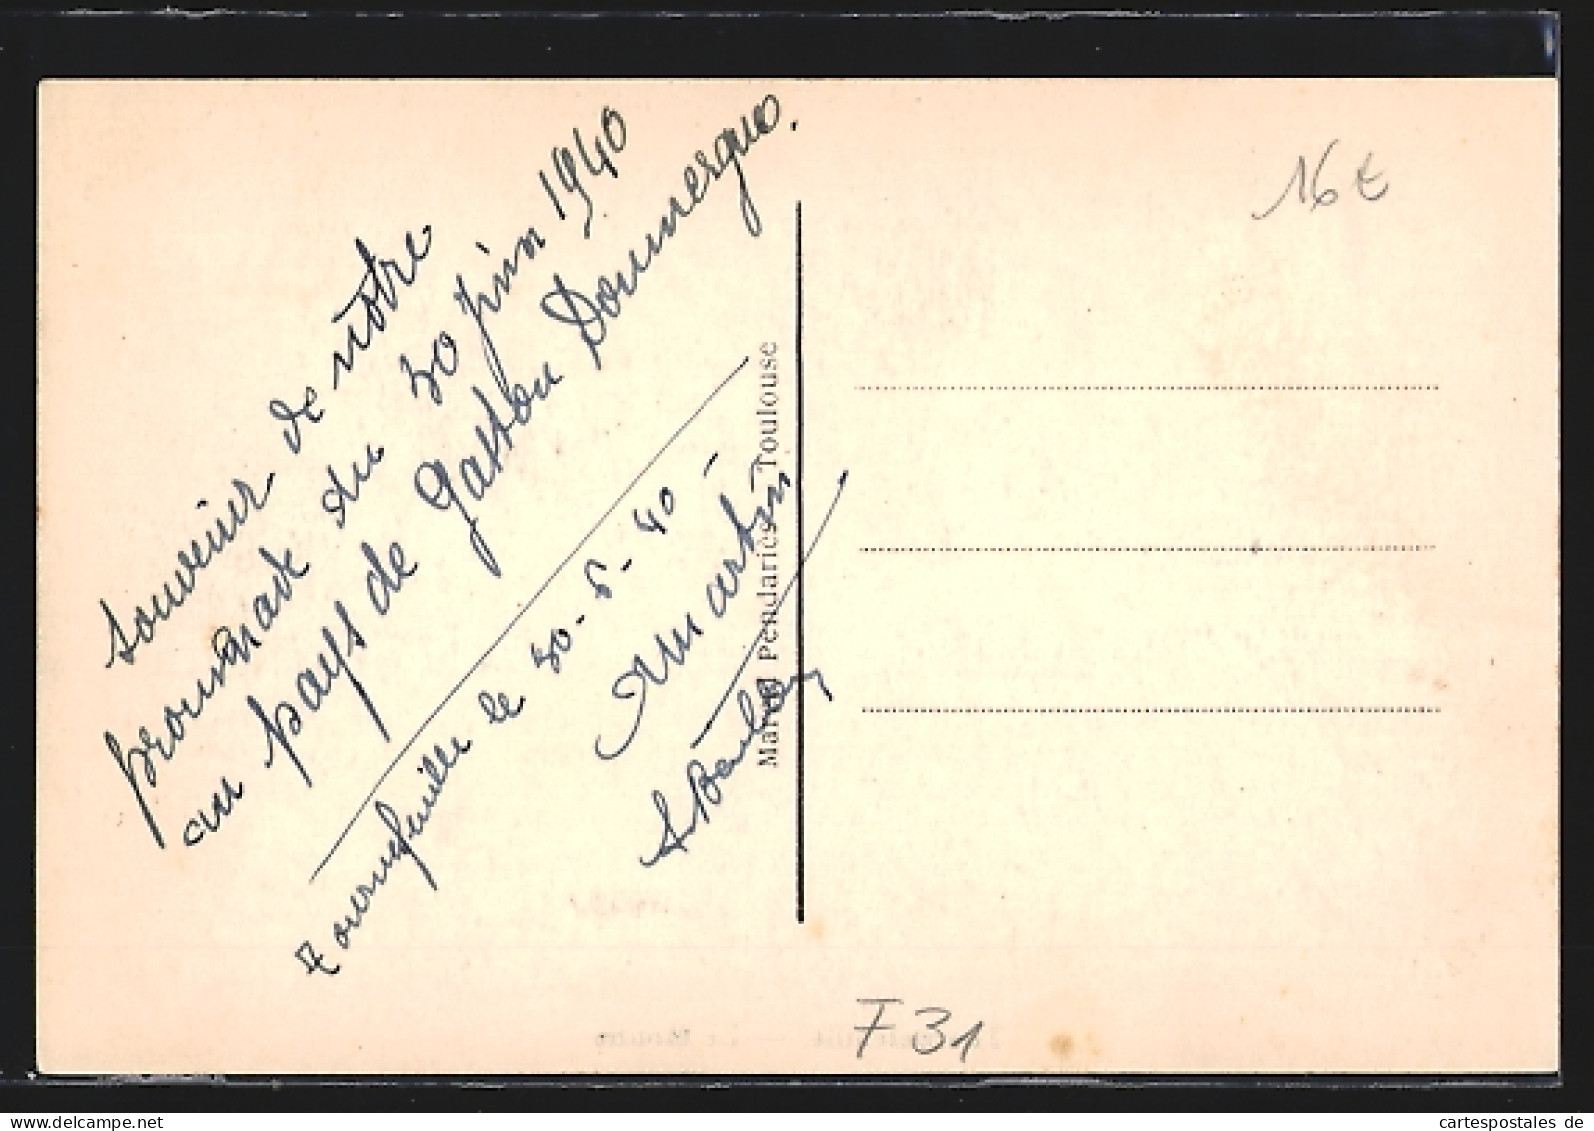 souvenir de notre
promenade du 30 juin 1940
au pays de Gaston Doumergue.
Tournefeuille le 30-6-40 -
Martin
Marcel Pendariès Toulouse
16 €
F 31
cartespostales de